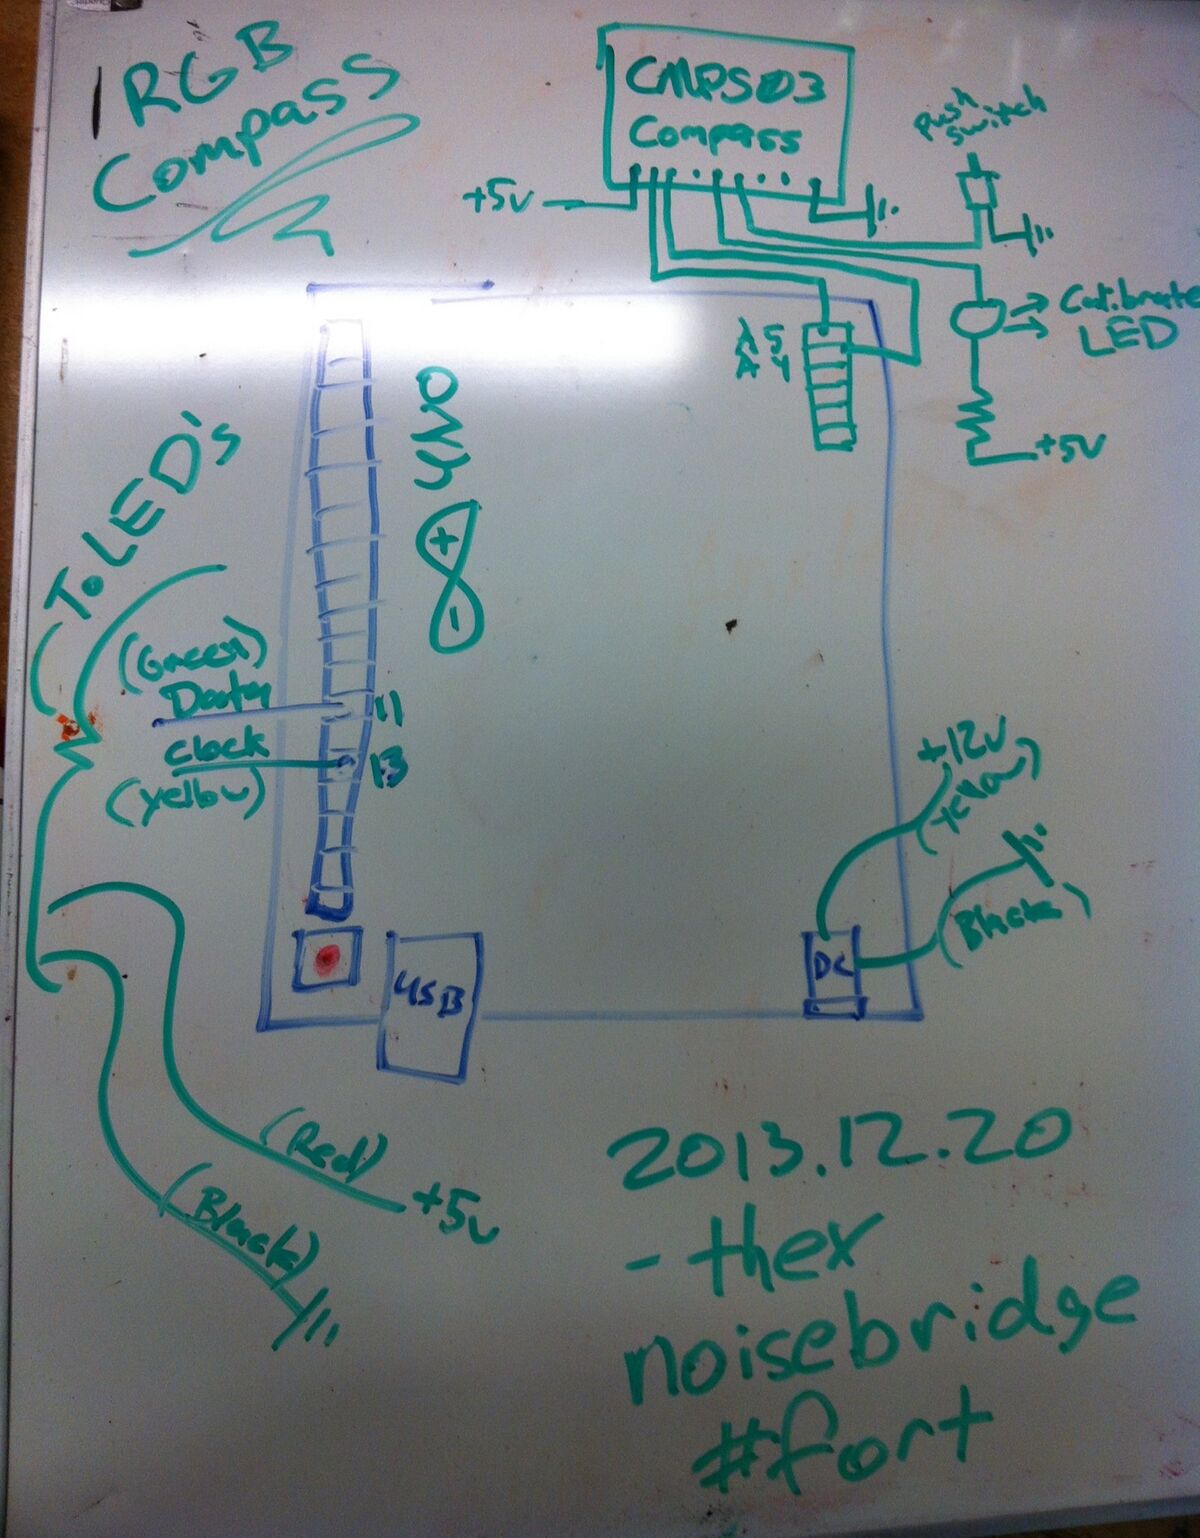 RGB
Compass
CMPS03
Compass
+5v
Push
switch
Calibrate
LED
+5V
A5
A4
UNO
+
-
To LED's
(Green)
Data
11
clock
13
(yellow)
+12v
(Yellow)
(Black)
DC
USB
(Red)
+5v
(Black)
2013.12.20
- thex
noisebridge
#fort